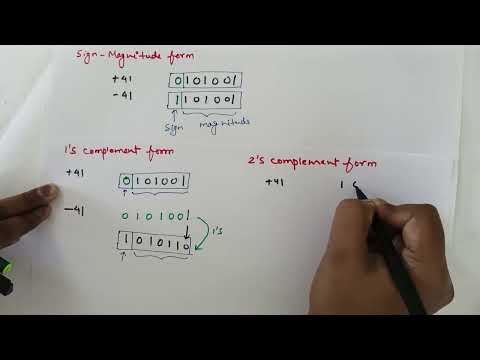 Sign-Magnitude form
+41 0101001
-41 1101001
sign magnitude
1's complement form
+41 0101001
-41 0101001
1's
1010110
2's complement form
+41 10